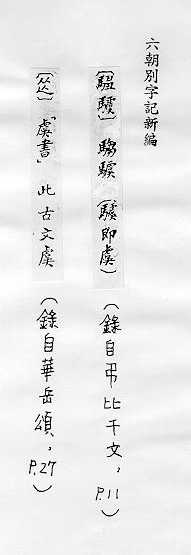 六朝別字記新編
（即虞）（錄自弔比干文，P.11）
「虞書」此古文虞（錄自華岳頌，P.27）